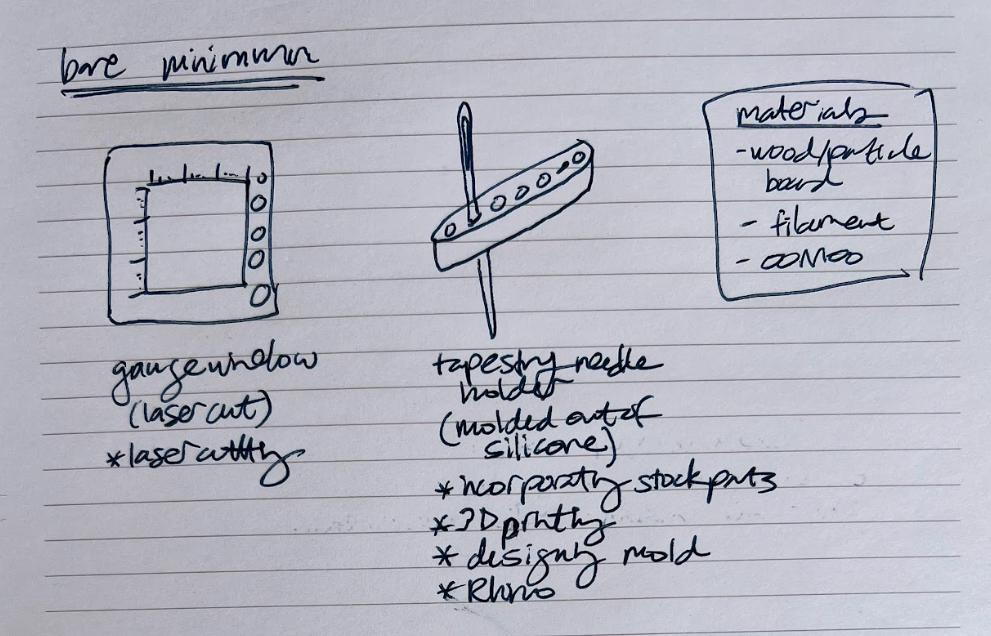 bare minimum
gauge window
(laser cut)
*laser cutting
tapestry needle
holder
(molded out of
silicone)
*incorporating stock parts
*3D printing
* designing mold
*Rhino
materials
-wood/particle
board
- filament
- OOMOO